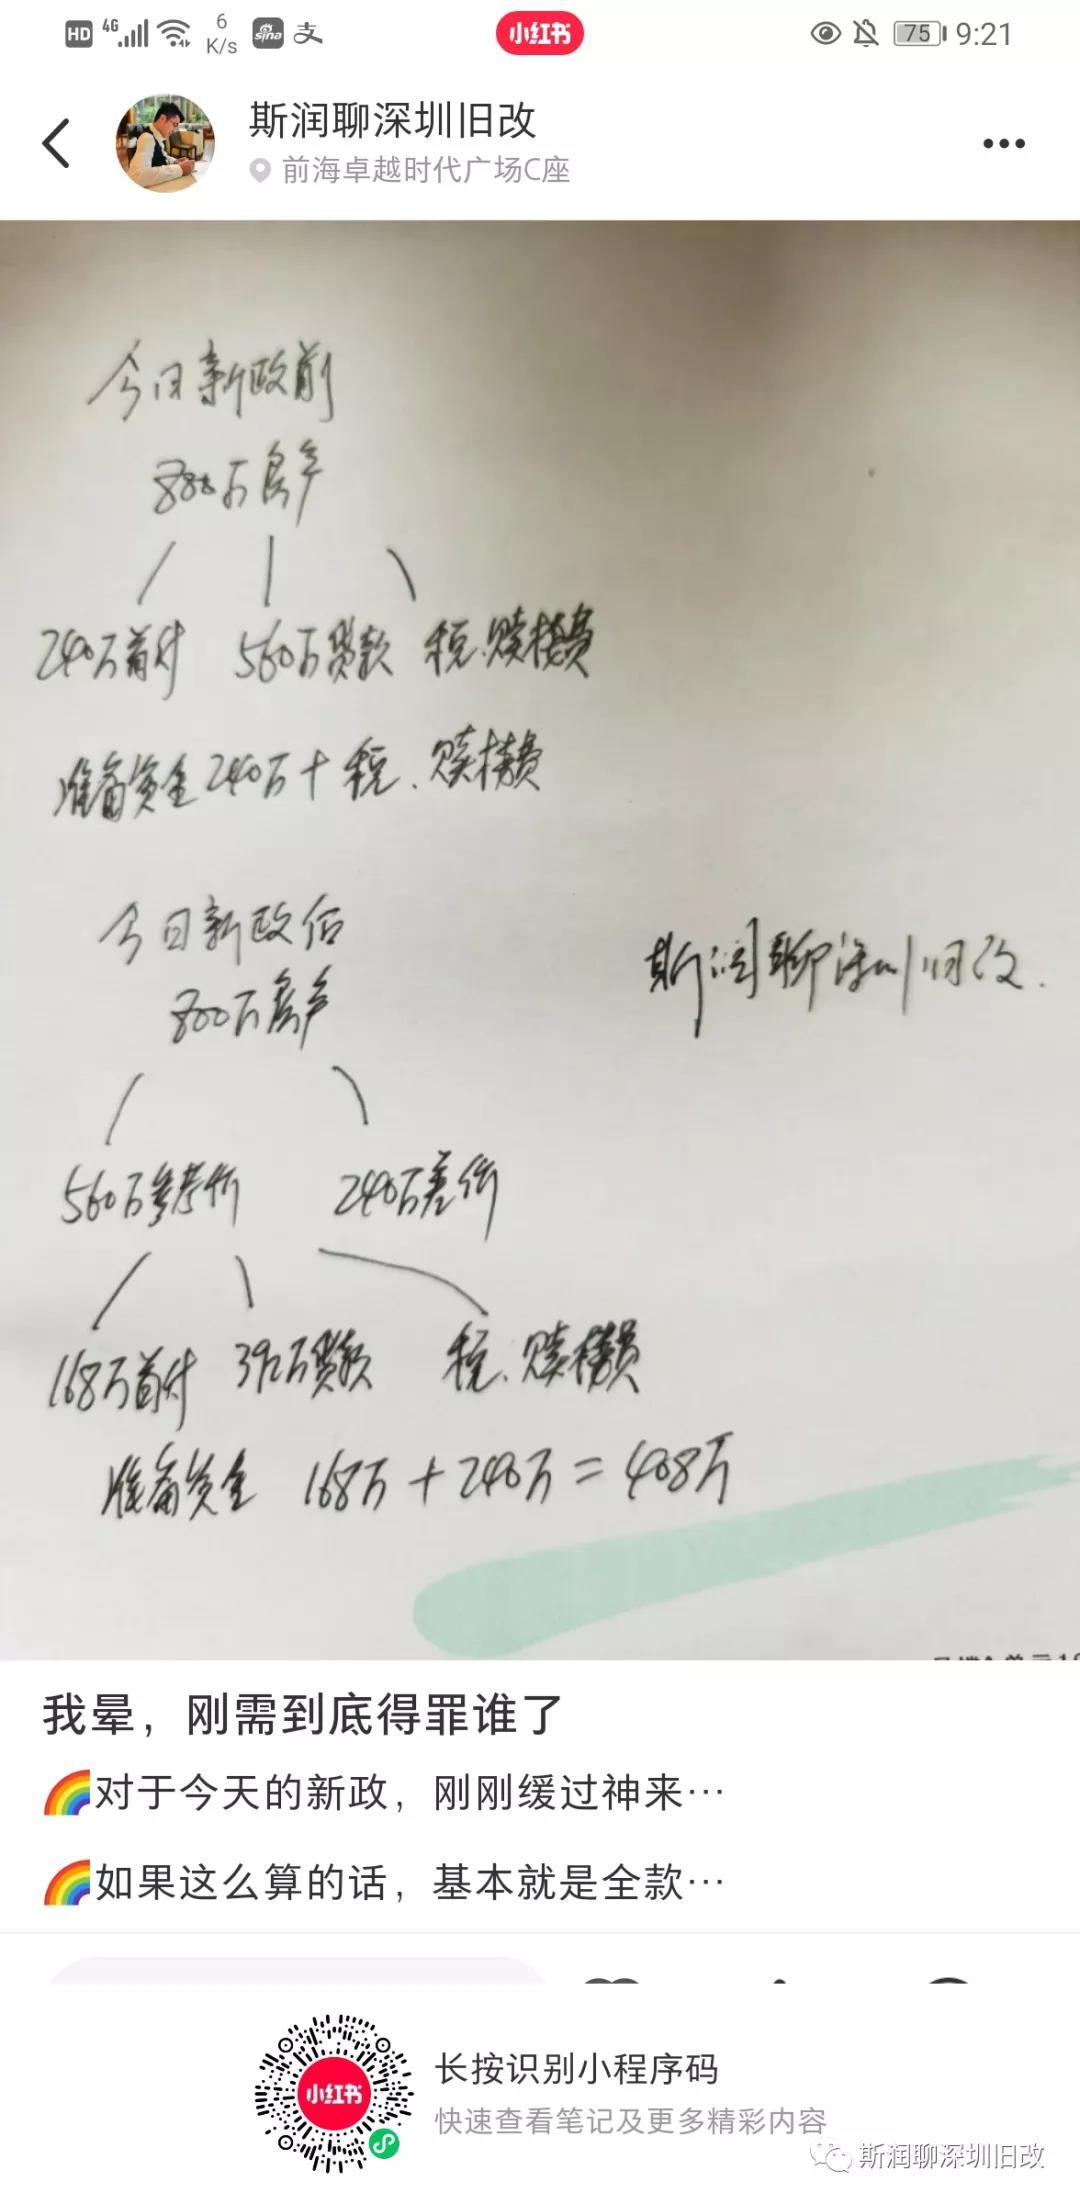 HD 4G 6 K/s sina 支 小红书 75 9:21
斯润聊深圳旧改
前海卓越时代广场C座
今日新政前
800万房产
240万首付 560万贷款 税.赎楼费
准备资金240万+税.赎楼费
今日新政后
斯润聊深圳旧改.
800万房产
560万参考价 240万差价
168万首付 392万贷款 税.赎楼费
准备资金 168万+240万=408万
我晕，刚需到底得罪谁了
🌈对于今天的新政，刚刚缓过神来…
🌈如果这么算的话，基本就是全款…
小红书
长按识别小程序码
快速查看笔记及更多精彩内容
斯润聊深圳旧改